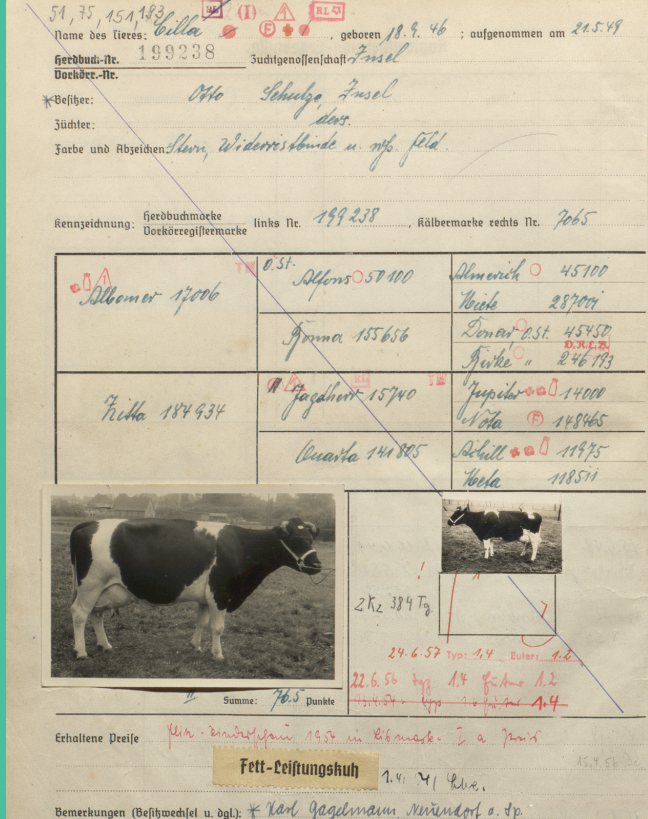 51, 75, 151, 193
Name des Tieres: Cilla, geboren 18.9.46; aufgenommen am 21.5.49
Herdbuch-Nr. 199238 Zuchtgenossenschaft Insel
Vorkörr.-Nr.
*Besitzer: Otto Schulze, Insel
Züchter: ders.
Farbe und Abzeichen: Stern, Widerristbinde u. Feld.
Kennzeichnung: Herdbuchmarke links Nr. 199238, Kälbermarke rechts Nr. 7065
Vorkörregistermarke
Albomer 17006
O.St. Alfons 50100
Almerich 45100
Wiete 28700
Donar O.St. 45450
D.R.L.B.
Ronna 155656
Birke " 246193
Zitta 184934
Jagdherr 15740
Jupiter 14000
Nota F 148465
Quarta 141805
Achill 11975
Meta 118511
ZKZ 384 Tg.
24.6.57 Typ: 1.4 Euter: 1.2
22.6.56 Typ 1.4 Euter 1.2
1.4
Summe: 76.5 Punkte
Erhaltene Preise 1954 in I a Preis
15.4.56
Fett-Leistungskuh
Bemerkungen (Besitzwechsel u. dgl.): * Karl Gagelmann, Neuendorf a. Sp.